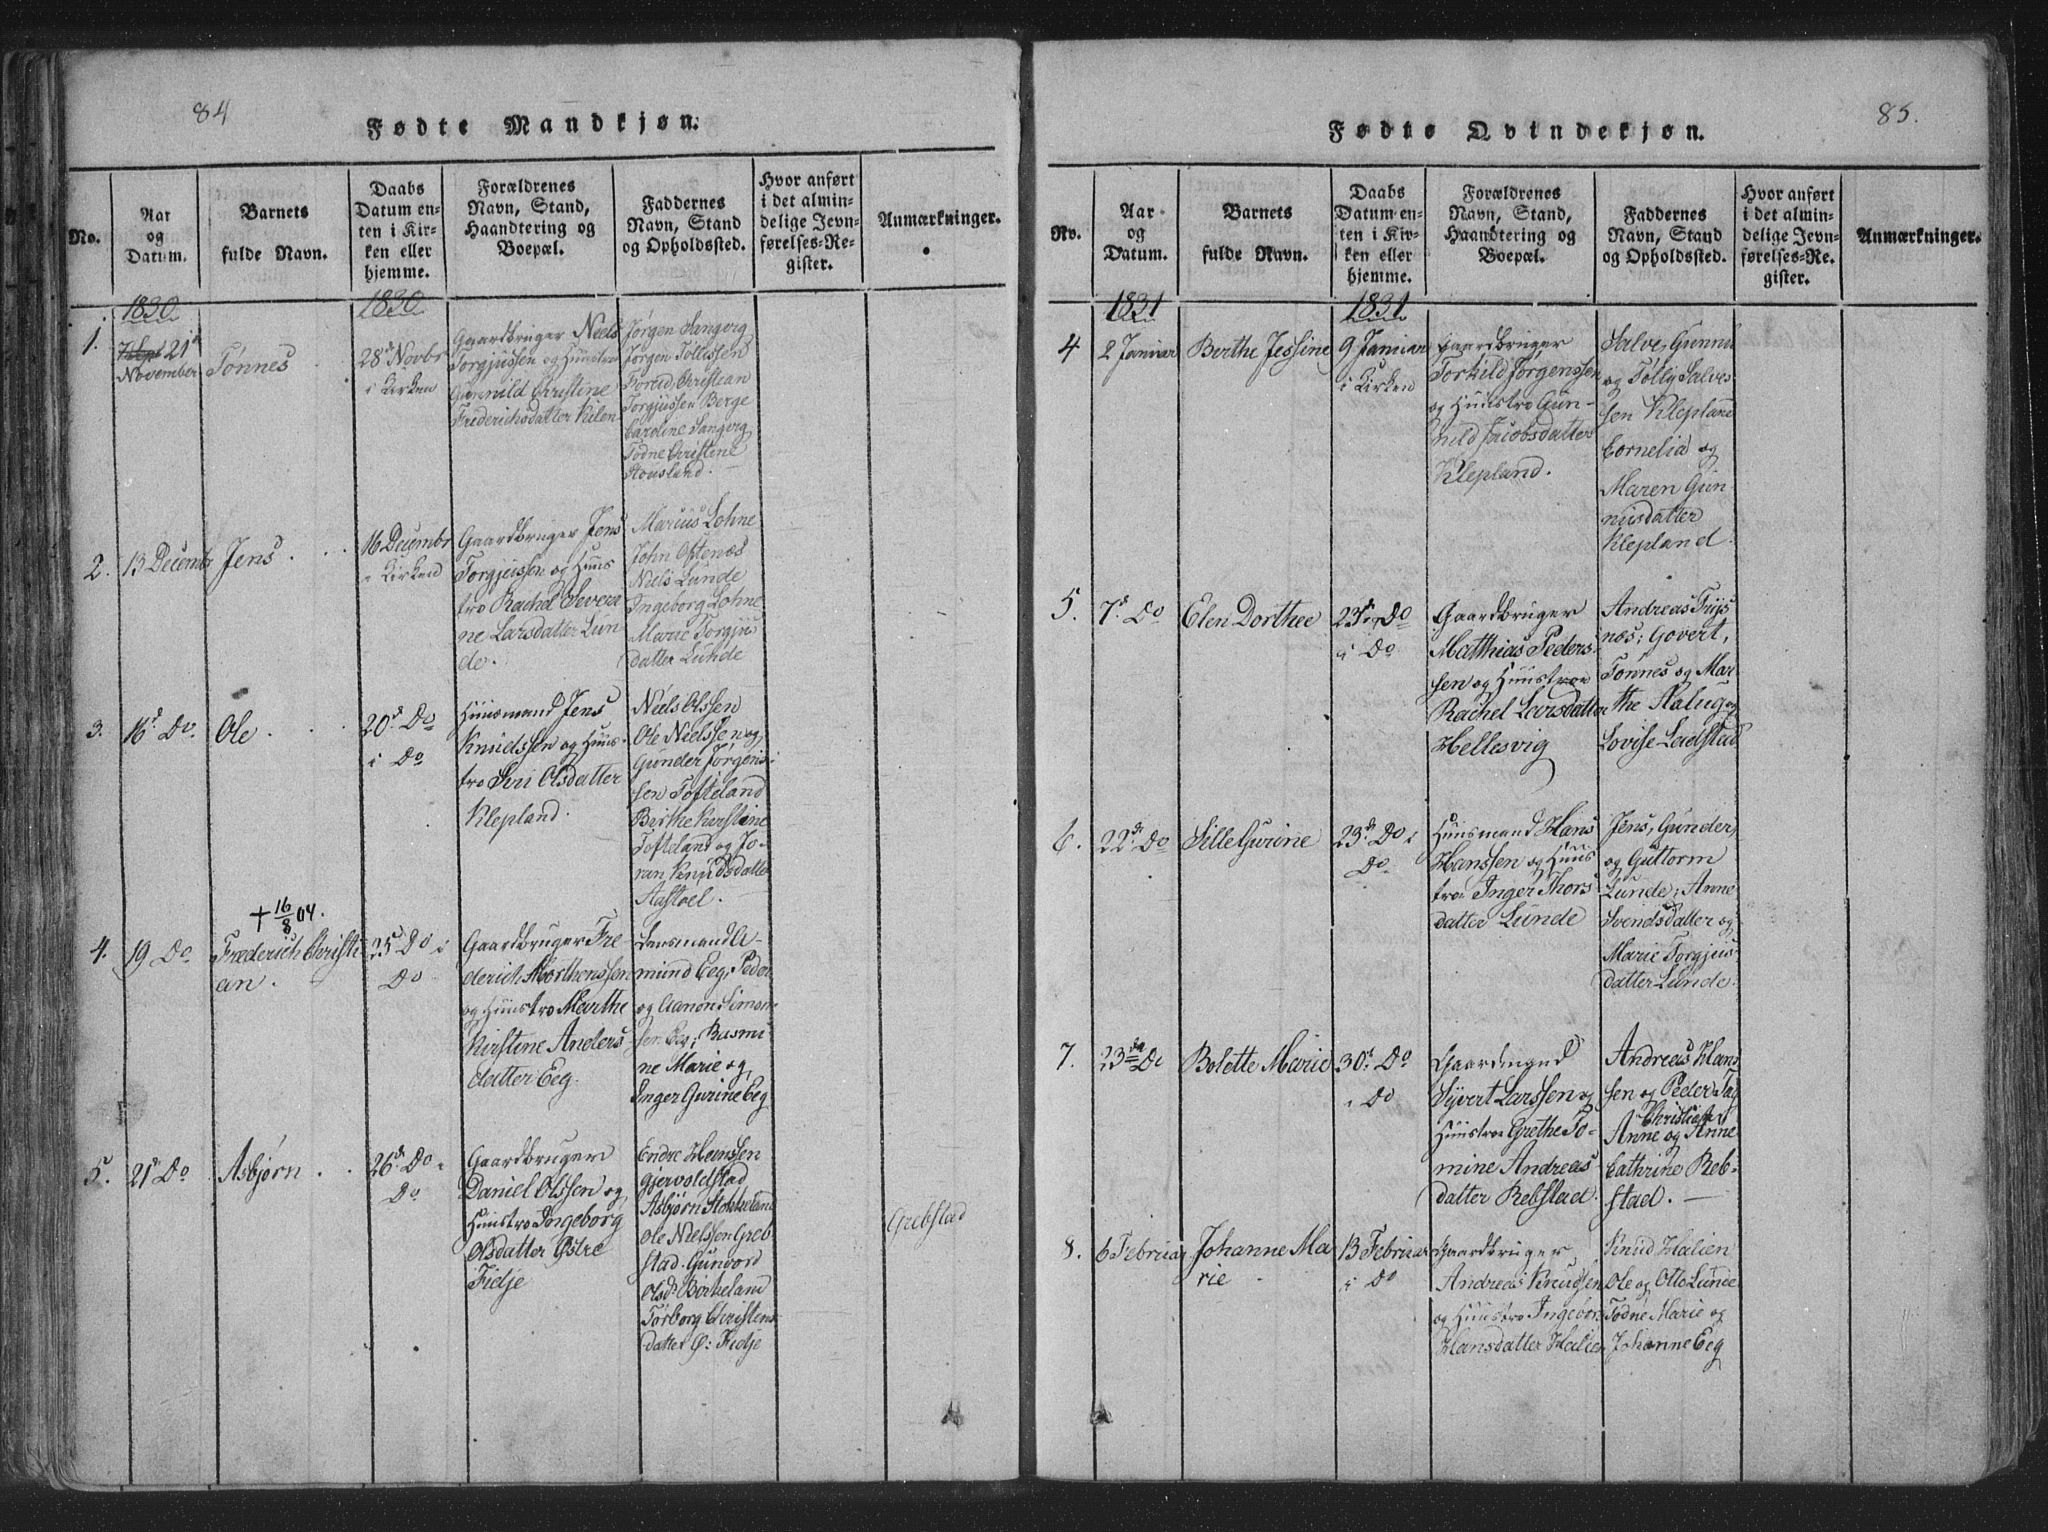 84
Fødte Mandkjøn.
No.
Aar
og
Datum.
Barnets
fulde Navn.
Daabs
Datum en-
ten i Kir-
ken eller
hjemme.
Forældrenes
Navn, Stand,
Haandtering og
Boepæl.
Faddernes
Navn, Stand
og Opholdssted.
Hvor anført
i det almin-
delige Jevn-
førelses-Re-
gister.
Anmærkninger.
1830
1830
1.
21de
November
Tønnes
28de Novbr
i Kirken
Gaardbruger Niels
Torgjussen og Hustro
Gunnild Christine
Frederichsdatter Kilen
Jørgen Sangvig
Jørgen Tollissen
Christian
Torgjussen Berge
Caroline Sangvig
Todne Christine
Stousland.
2.
13 Decembr
Jens
16 Decembr
i Kirken
Gaardbruger Jens
Torgjussen og Huus
tro Rachel Severi
ne Larsdatter Lun
de.
Marius Lohne
John Ostenæs
Niels Lunde
Ingeborg Lohne
Marie Torgjus
datter Lunde
3.
16d Do
Ole
20d Do
i Do
Huusmand Jens
Knudssen og Huus-
tro Siri Olsdatter
Klepland.
Niels Olssen
Ole Nielssen og
Gunder Jørgens-
sen Tofteland
Birthe Kirstine
Tofteland og Jo-
ran Knudsdatter
Aastoel.
+ 16/8 04.
4.
19 Do
Frederich Christi
an
25d Do i
Do
Gaardbruger Fre
derich Morthenssen
og Huustro Marthe
Kirstine Anders
datter Eeg.
Lensmand A-
mund Eeg, Peder
og Aanon Simon-
sen Eeg; Rasmi
ne Marie og
Inger Gurine Eeg
5.
21d Do
Asbjørn
26d Do i
Do
Gaardbruger
Daniel Olssen og
Huustro Ingeborg
Olsdatter Østre
Fidje
Endre Hanssen
Gjervoldstad
Asbjørn Stokkeland
Ole Nielssen Greb
stad. Gunvord
Olsd: Birkeland
Torborg Christens
datter Ø: Fidje
Grebstad
85.
Fødte Qvindekjøn.
No.
Aar
og
Datum.
Barnets
fulde Navn.
Daabs
Datum en-
ten i Kir-
ken eller
hjemme.
Forældrenes
Navn, Stand,
Haandtering og
Boepæl.
Faddernes
Navn, Stand
og Opholdssted.
Hvor anført
i det almin-
delige Jevn-
førelses-Re-
gister.
Anmærkninger.
1831
1831
4
2 Januar
Berthe Jessine
9 Januar
i Kirken
Gaardbruger
Torkild Jørgenssen
og Huustro Gun-
hild Jacobsdatter
Klepland.
Salve, Gunnu
og Tolly Salves
sen Klepland
Cornelia og
Maren Gun
nusdatter
Klepland.
5.
7d Do
Elen Dorthee
23d Do
i Do
Gaardbruger
Matthias Peders
sen og Huustroe
Rachel Larsdatter
Hellesvig
Andreas
næs; Govert,
Tønnes og Mar
the og
Lovise Ladstad
6.
22d Do
Sille Gurine
23d Do i
Do
Huusmand Hans
Hanssen og Huus
tro Inger Thors
datter Lunde
Jens, Gunder,
og Guttorm
Lunde; Anne
Svendsdatter og
Marie Torgjus-
datter Lunde.
7.
23de Do
Bolette Marie
30d Do
i Do
Gaardmand
Syvert Larssen og
Huustro Grethe To-
mine Andreas
datter Rebstad.
Andreas Hans
sen og Peder
Christiensd
Anne og Anne
Cathrine Reb-
stad. —
8.
6 Februar
Johanne Ma
rie
13 Februar
i Do
Gaardbruger
Andreas Knudsen
og Huustro Ingebor
Hansdatter Halien
Knud Halien
Ole og Otto Lunde
Todne Marie og
Johanne Eeg